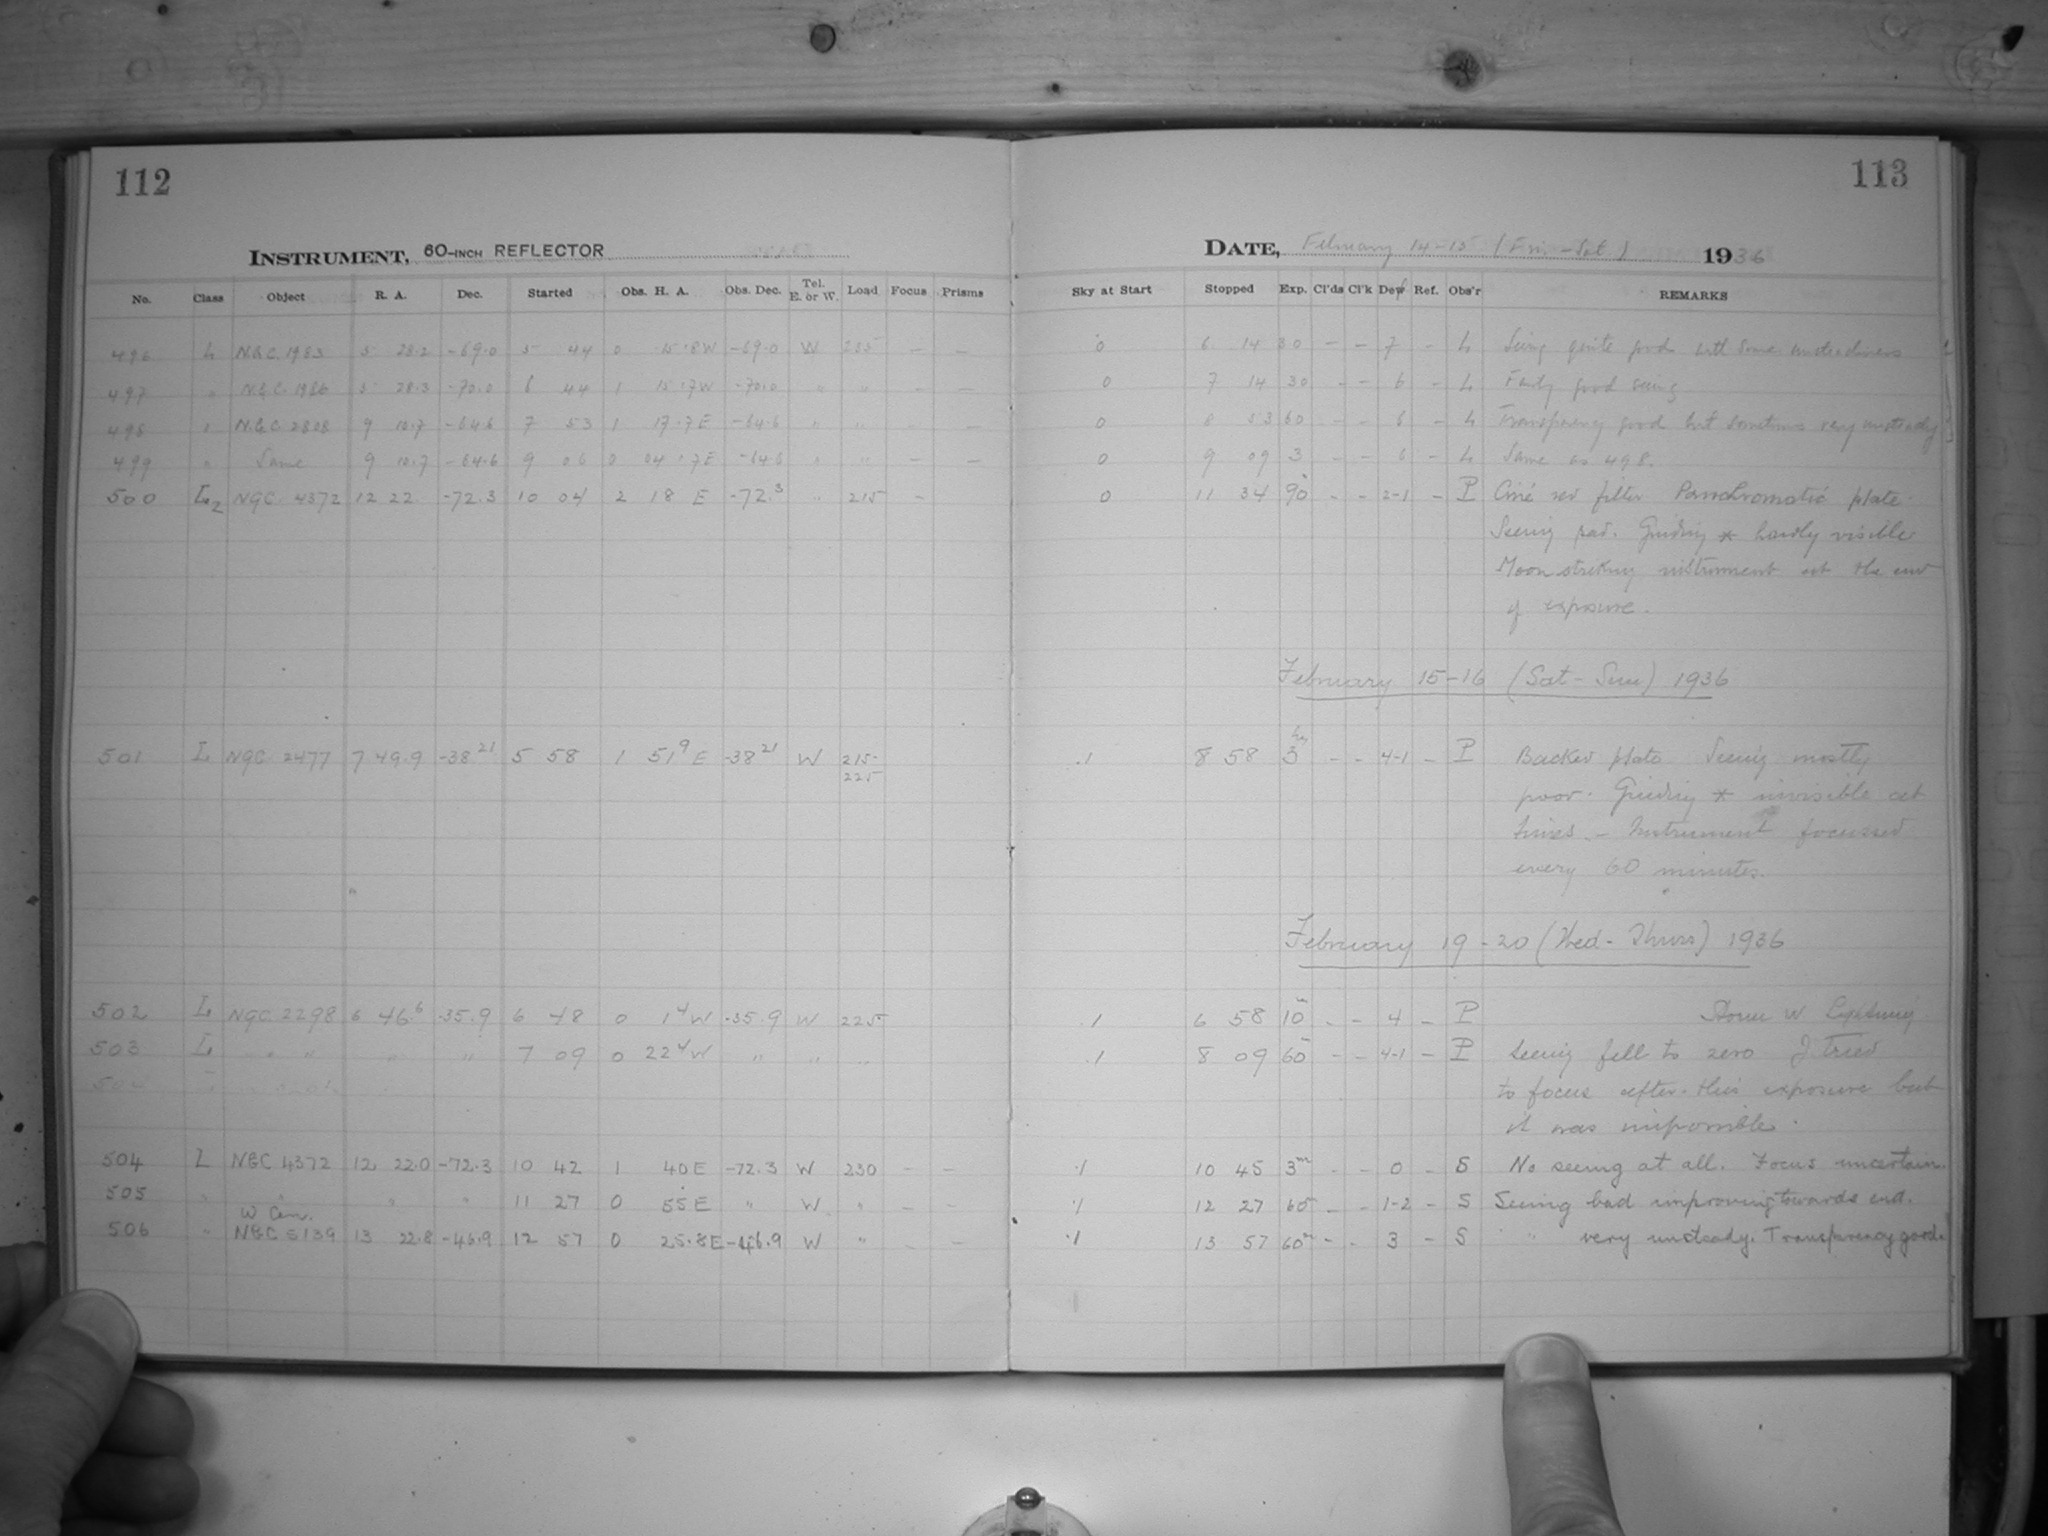 112
113
INSTRUMENT, 60-INCH REFLECTOR
DATE, February 14-15 (Fri-Sat) 1936
No. Class Object R. A. Dec. Started Obs. H. A. Obs. Dec. Tel. E. or W. Load Focus Prisms Sky at Start Stopped Exp. Cl'ds Cl'k Dew Ref. Obs'r REMARKS
496 L NGC 1983 5 28.2 -69.0 5 44 0 15.8W -69.0 W 235 - - 0 6 14 30 - - 7 - L Seeing quite good with some unsteadiness
497 " NGC 1986 5 28.3 -70.0 6 44 1 15.7W -70.0 " " - - 0 7 14 30 - - 6 - L Fairly good seeing
498 " NGC 2808 9 10.7 -64.6 7 53 1 17.7E -64.6 " " - - 0 8 53 60 - - 6 - L Transparency good but sometimes very unsteady
499 " Same 9 10.7 -64.6 9 06 0 04.7E -64.6 " " - - 0 9 09 3 - - 6 - L Same as 498.
500 L2 NGC 4372 12 22 -72.3 10 04 2 18 E -72.3 " 215 - 0 11 34 90 - - 2-1 - P Ciné red filter Panchromatic plate.
Seeing bad. Guiding * hardly visible
Moon striking instrument at the end
of exposure.
February 15-16 (Sat-Sun) 1936
501 L NGC 2477 7 49.9 -38 21 5 58 1 51 9 E -38 21 W 215- .1 8 58 3 hrs - - 4-1 - P Backed plate Seeing mostly
225
poor. Guiding * invisible at
times. - Instrument focussed
every 60 minutes.
February 19-20 (Wed-Thurs) 1936
502 L NGC 2298 6 46.6 -35.9 6 48 0 1 4 W -35.9 W 225 .1 6 58 10 m - - 4 - P Dome W
503 L " " " " 7 09 0 22 4 W " " " .1 8 09 60 - - 4-1 - P Seeing fell to zero I tried
504
to focus after this exposure but
it was impossible.
504 L NGC 4372 12 22.0 -72.3 10 42 1 40E -72.3 W 230 - - .1 10 45 3m - - 0 - S No seeing at all. Focus uncertain.
505 " " " 11 27 0 55E " W " - - .1 12 27 60m - - 1-2 - S Seeing bad improving towards end.
ω Cen.
506 " NGC 5139 13 22.8 -46.9 12 57 0 25.8E -46.9 W " - - .1 13 57 60m - - 3 - S " very unsteady. Transparency good.